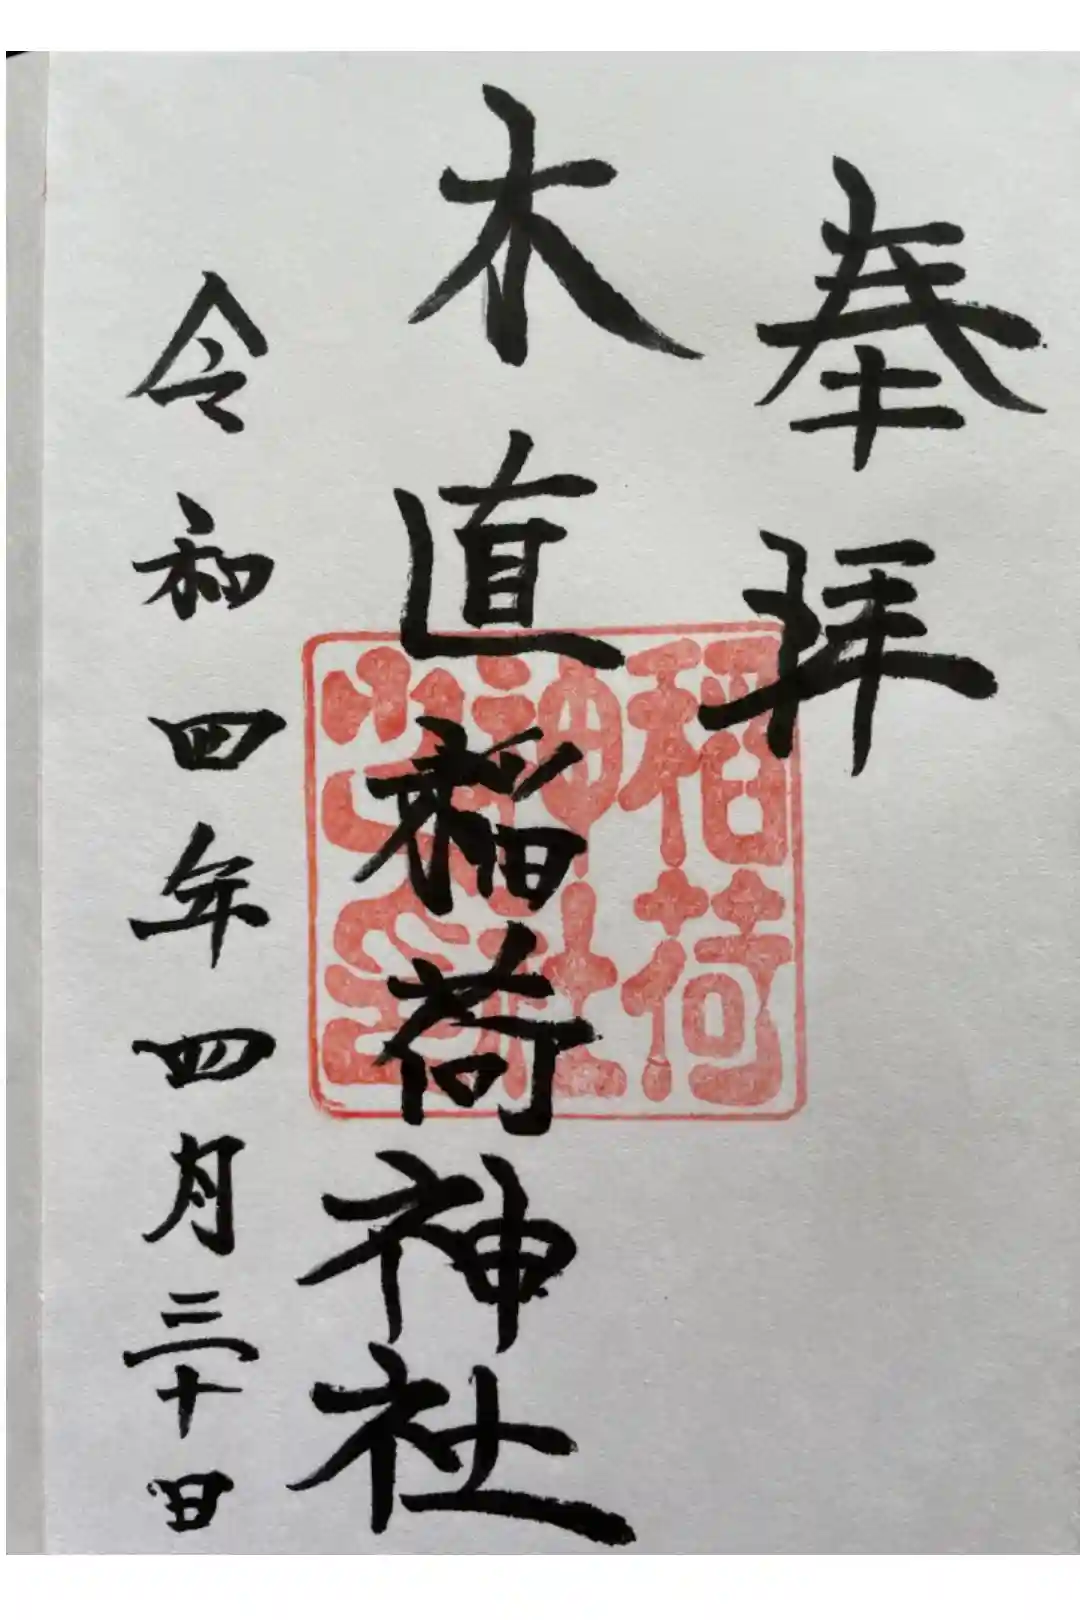 奉拝
木直稲荷神社
令和四年四月三十日
稲荷
神社
之印